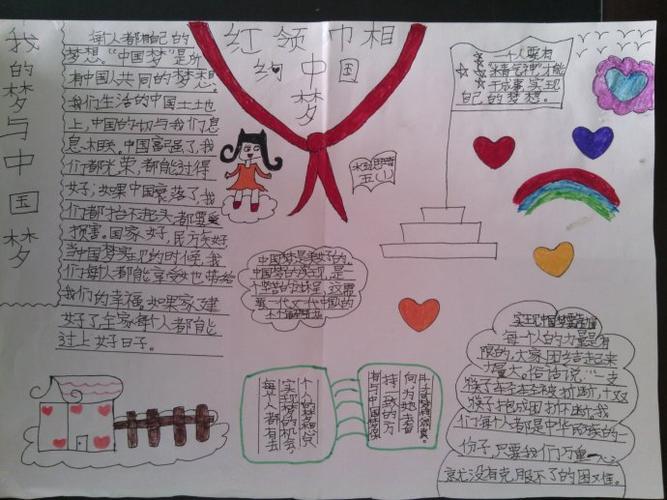 我的梦与中国梦
每人都有自己的
梦想。“中国梦”是所
有中国人共同的梦想。
我们生活的中国土土也
上,中国的切与我们息
息相关。中国富强了,我
们都光荣,都能过得
好;如果中国衰落了,我
们都抬不起头,都要受
损害。国家好,民方矢好
当中国梦实现的时候,我
们每人都能享受也带给
我们的幸福。如果家建
好了全家每个人都能
过上好日子。
红领巾相
约中国
梦
一个人要有
才能
干成事实现
自己的梦想。
五(1)
中国梦是美好的,
中国梦的实现,是
十
一代又一代中国的
个人的梦想总
实现梦的机会
每个人都有去
向,为她去奋
持一致的方
实现中国梦需要力量
每个人的力量是有
限的,大家团结起来
力量大。俗话说:“一支
筷子轻轻被折断,十双
筷子抱成团折不断”,我
们每个人都是中华民族的一
份子,只要我们万重一心
就没有克服不了的困难。